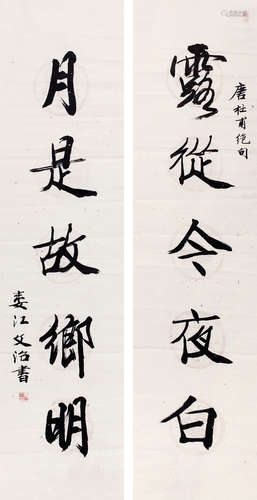 唐杜甫絕句
露從今夜白
月是故鄉明
婁江文治書